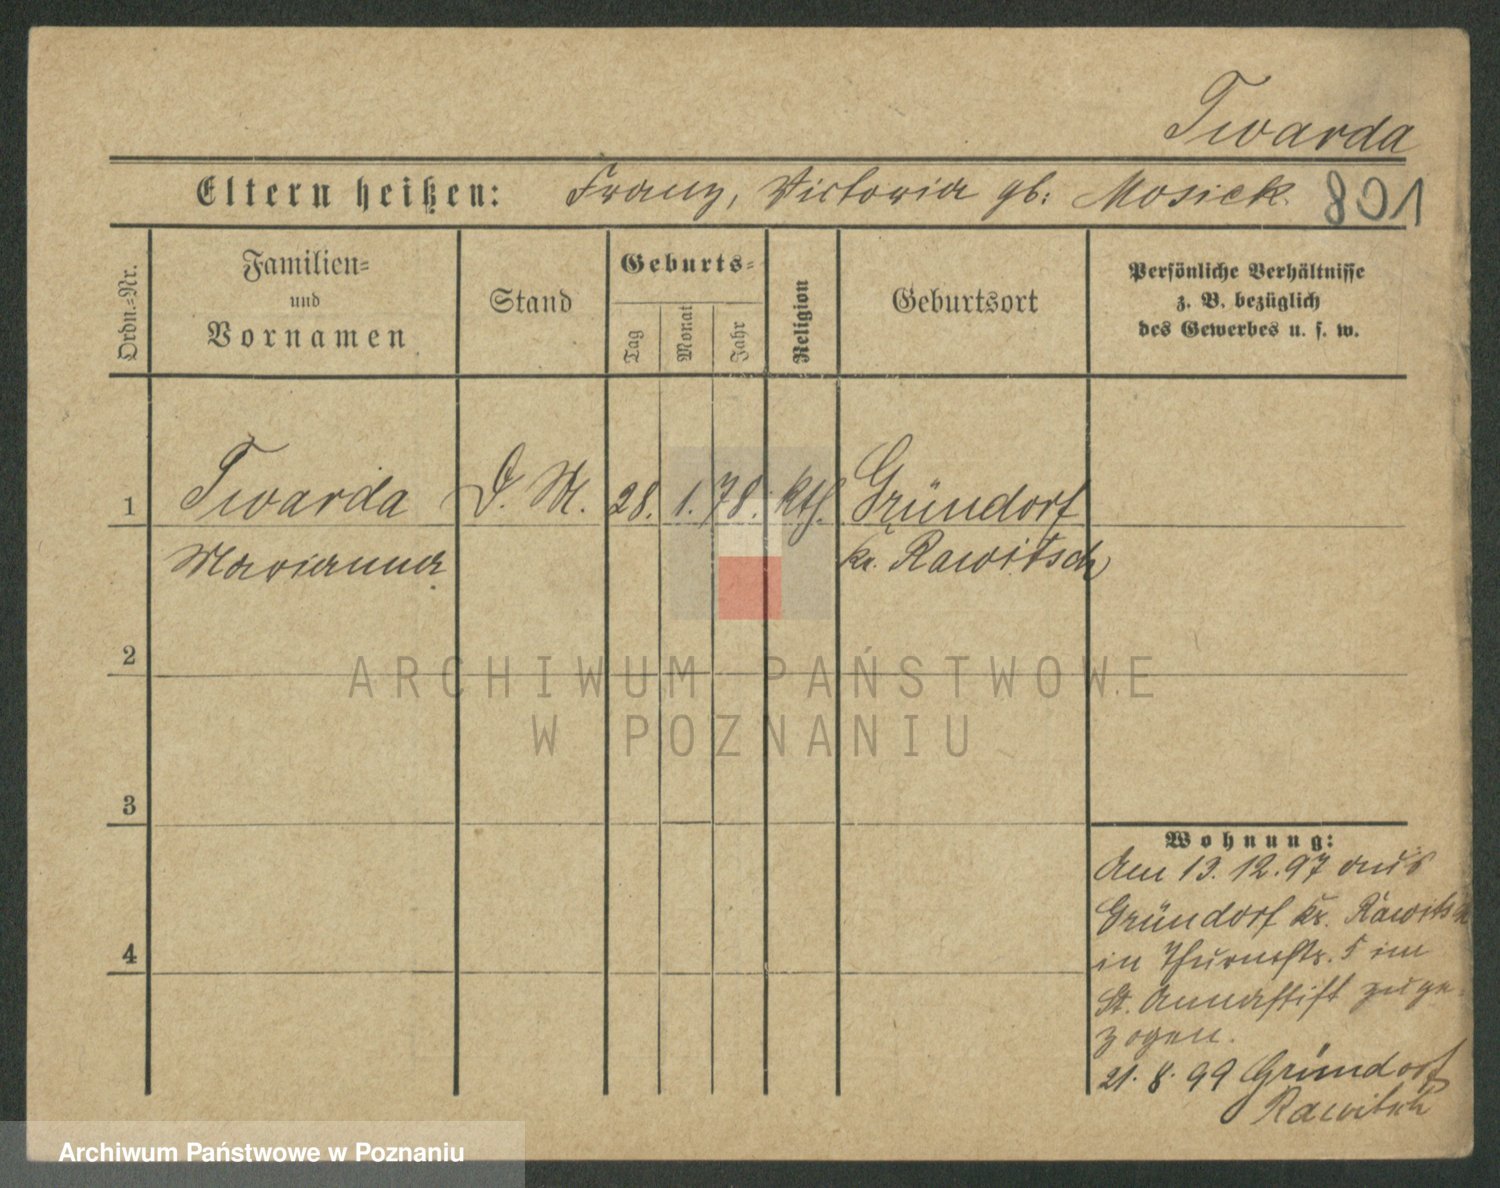 Twarda
Eltern heißen: Franz, Victoria gb: Mosiek 801
Ordn.=Nr.
Familien=
und
Vornamen
Stand
Geburts=
Tag
Monat
Jahr
Religion
Geburtsort
Persönliche Verhältnisse
z. B. bezüglich
des Gewerbes u. s. w.
1 Twarda D. M. 28. 1. 78. kth. Gründorf
Marianna kr. Rawitsch
2
3
4
Wohnung:
Am 13.12.97 aus
Gründorf Kr. Rawitsch
in Thurmstr. 5 im
St. Annastift zuge-
zogen.
21.8.99 Gründorf
Rawitsch
ARCHIWUM PAŃSTWOWE
W POZNANIU
Archiwum Państwowe w Poznaniu